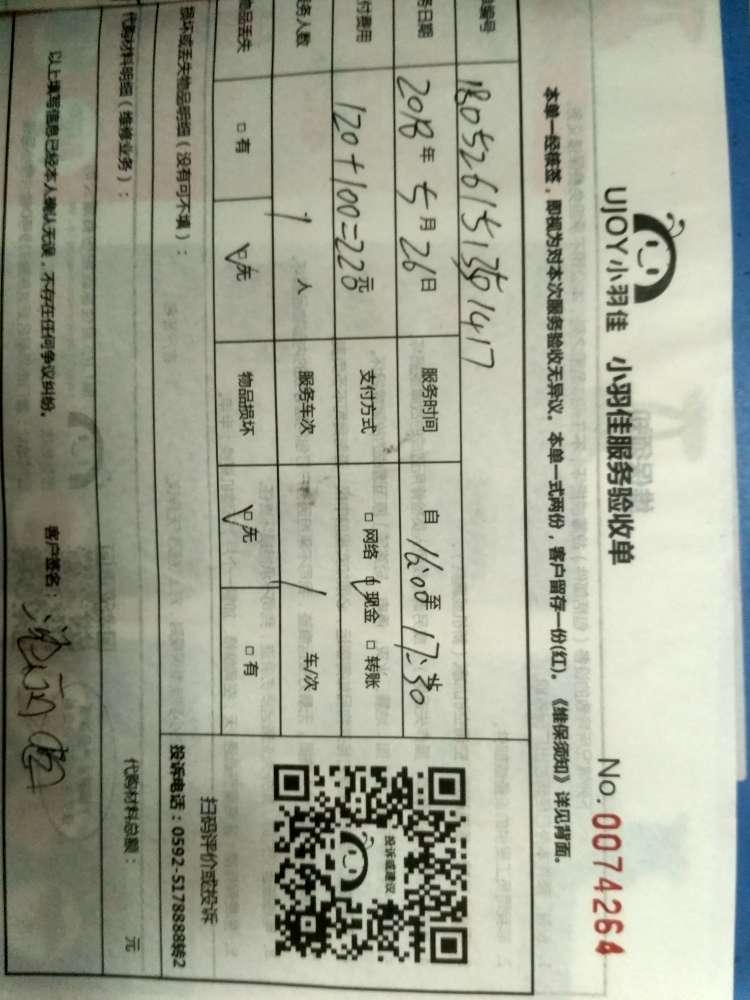 UJOY小羽佳 小羽佳服务验收单 No. 0074264
本单一经核签，即视为对本次服务验收无异议。本单一式两份，客户留存一份(红)。《维保须知》详见背面。
编号
日期 2018年5月26日 服务时间 自16:00至17:30
付费用 120+100=220元 支付方式 □网络 ☑现金 □转账
务人数 1人 服务车次 1车/次
物品丢失 □有 ☑无 物品损坏 ☑无 □有
损坏或丢失物品明细（没有可不填）：
投诉或建议
扫码评价或投诉
投诉电话：0592-5178888转2
代购材料明细（维修业务）： 代购材料总额： 元
以上填写信息已经本人确认无误，不存在任何争议纠纷。 客户签名：